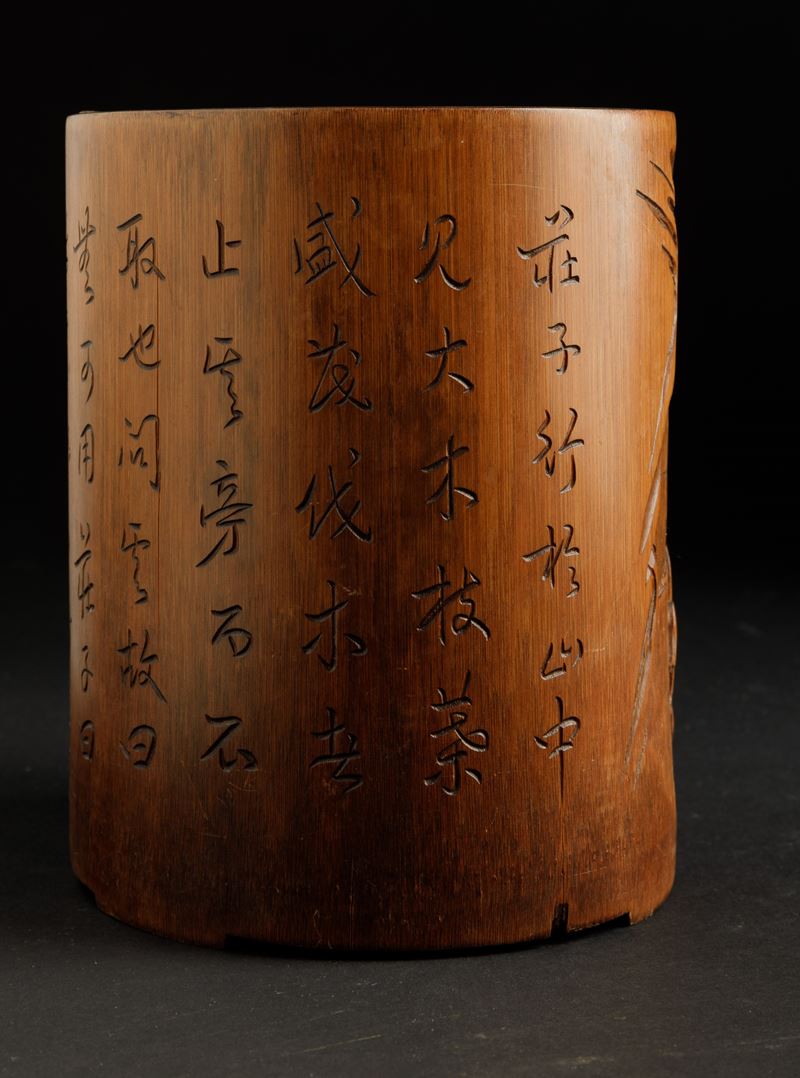 莊子行於山中
見大木枝葉
盛茂伐木者
止其旁而不
取也問其故曰
無可用莊子曰